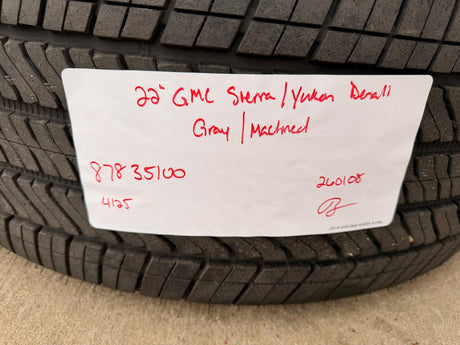 22" GMC Sierra/Yukon Denali
Gray/Machined
87835100
4125
260108